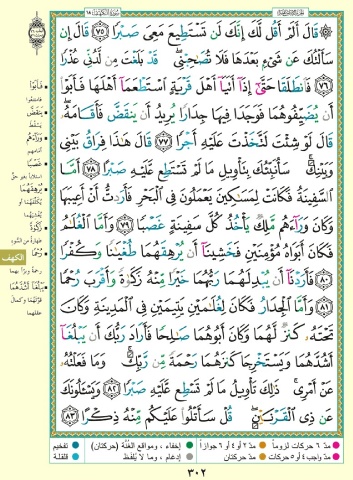 ۞ قَالَ أَلَمْ أَقُل لَّكَ إِنَّكَ لَن تَسْتَطِيعَ مَعِىَ صَبْرًا ٧٥ قَالَ إِن
سَأَلْتُكَ عَن شَىْءٍۭ بَعْدَهَا فَلَا تُصَٰحِبْنِى ۖ قَدْ بَلَغْتَ مِن لَّدُنِّى عُذْرًا
٧٦ فَٱنطَلَقَا حَتَّىٰٓ إِذَآ أَتَيَآ أَهْلَ قَرْيَةٍ ٱسْتَطْعَمَآ أَهْلَهَا فَأَبَوْا۟
أَن يُضَيِّفُوهُمَا فَوَجَدَا فِيهَا جِدَارًا يُرِيدُ أَن يَنقَضَّ فَأَقَامَهُۥ ۖ
قَالَ لَوْ شِئْتَ لَتَّخَذْتَ عَلَيْهِ أَجْرًا ٧٧ قَالَ هَٰذَا فِرَاقُ بَيْنِى
وَبَيْنِكَ ۚ سَأُنَبِّئُكَ بِتَأْوِيلِ مَا لَمْ تَسْتَطِع عَّلَيْهِ صَبْرًا ٧٨ أَمَّا
ٱلسَّفِينَةُ فَكَانَتْ لِمَسَٰكِينَ يَعْمَلُونَ فِى ٱلْبَحْرِ فَأَرَدتُّ أَنْ أَعِيبَهَا
وَكَانَ وَرَآءَهُم مَّلِكٌ يَأْخُذُ كُلَّ سَفِينَةٍ غَصْبًا ٧٩ وَأَمَّا ٱلْغُلَٰمُ
فَكَانَ أَبَوَاهُ مُؤْمِنَيْنِ فَخَشِينَآ أَن يُرْهِقَهُمَا طُغْيَٰنًا وَكُفْرًا
٨٠ فَأَرَدْنَآ أَن يُبْدِلَهُمَا رَبُّهُمَا خَيْرًا مِّنْهُ زَكَوٰةً وَأَقْرَبَ رُحْمًا
٨١ وَأَمَّا ٱلْجِدَارُ فَكَانَ لِغُلَٰمَيْنِ يَتِيمَيْنِ فِى ٱلْمَدِينَةِ وَكَانَ
تَحْتَهُۥ كَنزٌ لَّهُمَا وَكَانَ أَبُوهُمَا صَٰلِحًا فَأَرَادَ رَبُّكَ أَن يَبْلُغَآ
أَشُدَّهُمَا وَيَسْتَخْرِجَا كَنزَهُمَا رَحْمَةً مِّن رَّبِّكَ ۚ وَمَا فَعَلْتُهُۥ
عَنْ أَمْرِى ۚ ذَٰلِكَ تَأْوِيلُ مَا لَمْ تَسْطِع عَّلَيْهِ صَبْرًا ٨٢ وَيَسْـَٔلُونَكَ
عَن ذِى ٱلْقَرْنَيْنِ ۖ قُلْ سَأَتْلُوا۟ عَلَيْكُم مِّنْهُ ذِكْرًا ٨٣
فَأَبَوْا
يَنقَضَّ
يَسْقُطَ
وَرَآءَهُم
غَصْبًا
يُرْهِقَهُمَا
زَكَوٰةً
رُحْمًا
الكهف
يَبْلُغَآ أَشُدَّهُمَا
مدّ ٦ حركات لزوماً
مدّ ٢ أو ٤ أو ٦ جوازاً
إخفاء، ومواقع الغُنَّة (حركتان)
تفخيم
مدّ واجب ٤ أو ٥ حركات
مدّ حركتان
إدغام، وما لا يُلفَظ
قلقلة
٣٠٢